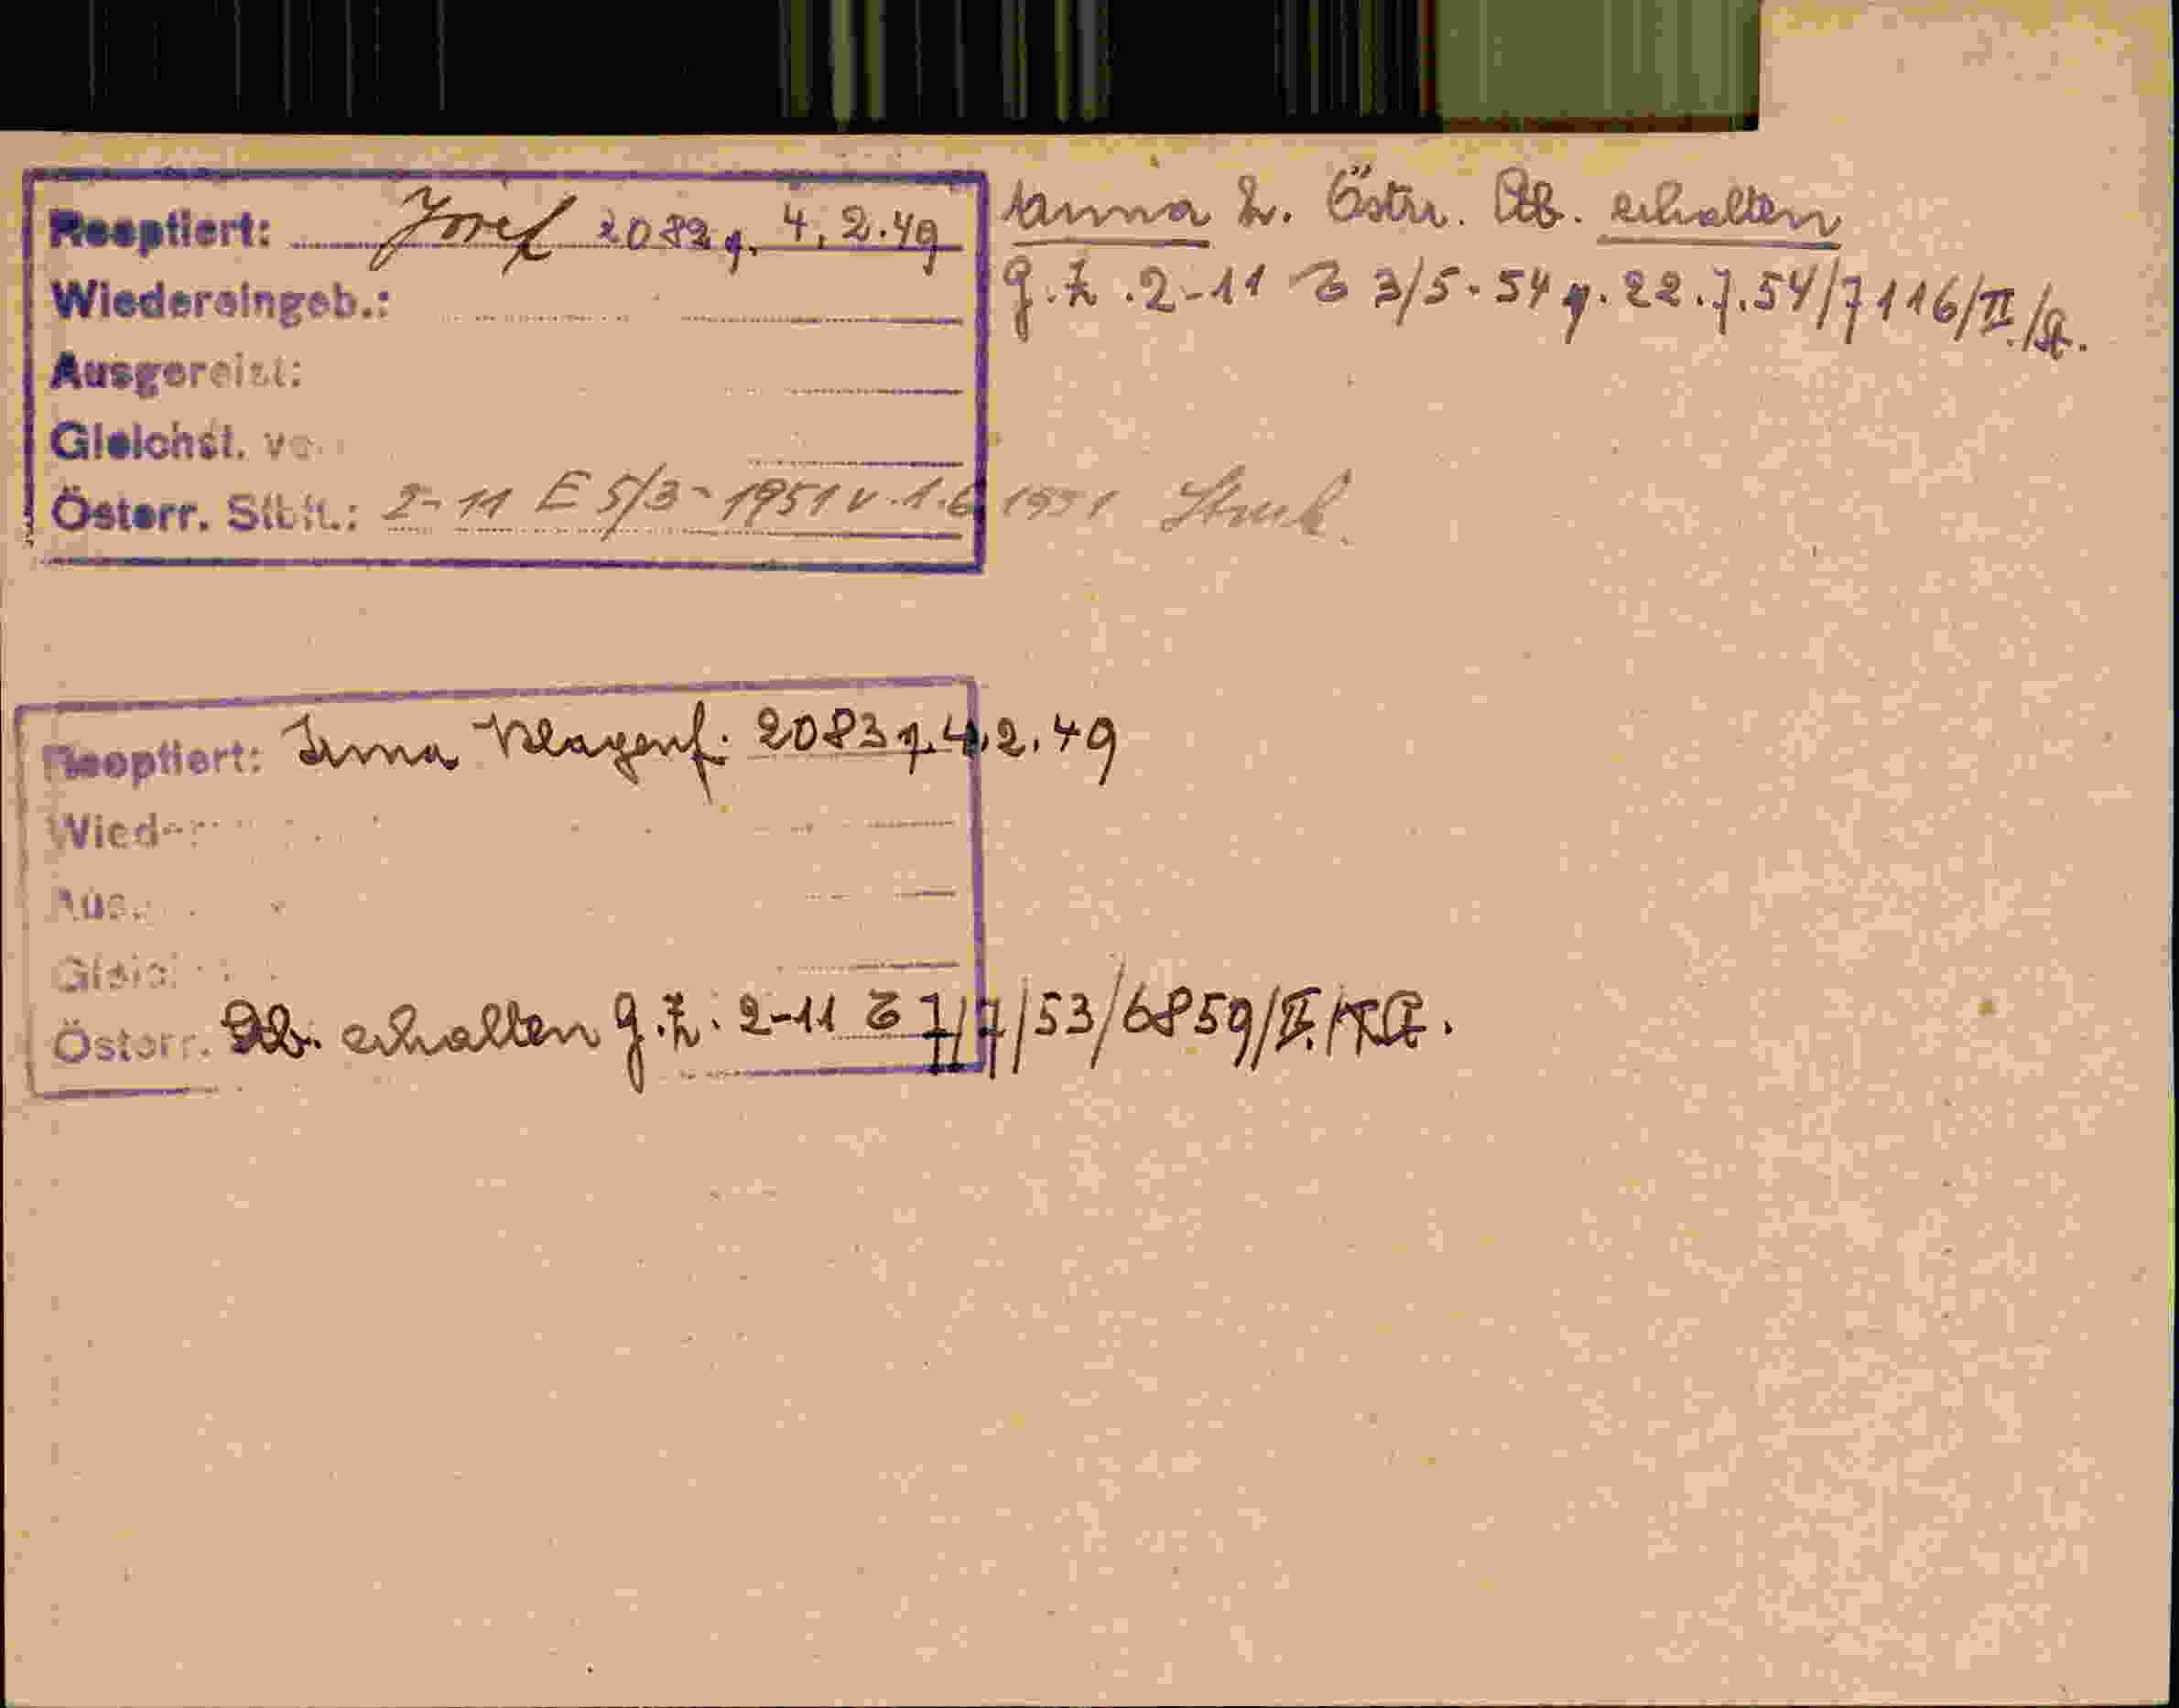 Reoptiert: Josef 2082 v. 4.2.49
Wiedereingeb.:
Ausgereist:
Gleichst. v
Österr. Stbft.: 2-11 E 5/3-1951 v. 1.6.1951
Anna Östr. Ab. erhalten
g.Z. 2-11 E 3/5-54 v. 22.7.54/7116/II/
Reoptiert: Irma Klagenf. 2083 v. 4.2.49
Wied
Aus
Gleic
Österr. Ab. erhalten g.Z. 2-11 E 7/7/53/6859/II/